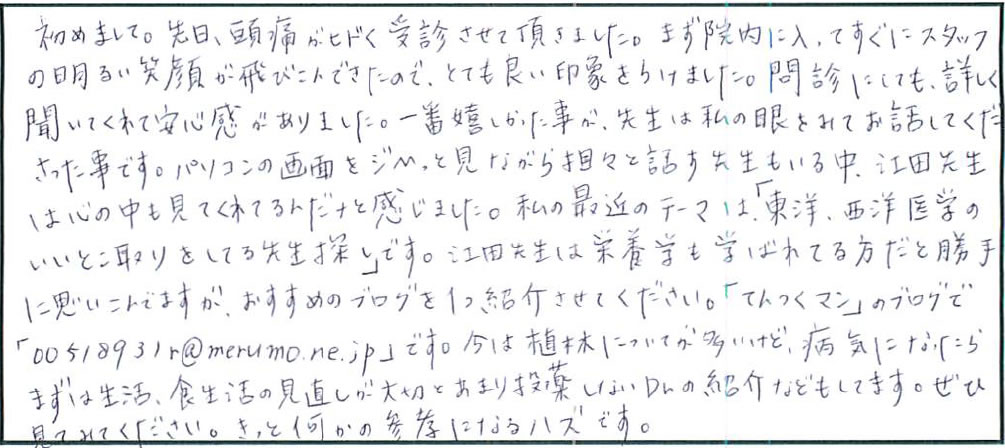 初めまして。先日、頭痛がヒドく受診させて頂きました。まず院内に入ってすぐにスタッフ
の明るい笑顔が飛びこんできたので、とても良い印象をうけました。問診にしても、詳しく
聞いてくれて安心感がありました。一番嬉しかった事が、先生は私の眼をみてお話してくだ
さった事です。パソコンの画面をジーッと見ながら坦々と話す先生もいる中、江田先生
は心の中も見てくれてるんだナと感じました。私の最近のテーマは、「東洋、西洋医学の
いいとこ取りをしてる先生探し」です。江田先生は栄養学も学ばれてる方だと勝手
に思いこんでますが、おすすめのブログを1つ紹介させてください。「てんつくマン」のブログで
「00518931r@merumo.ne.jp」です。今は植林についてが多いけど、病気になったら
まずは生活、食生活の見直しが大切とあまり投薬しないDr.の紹介などもしてます。ぜひ
見てみてください。きっと何かの参考になるハズです。